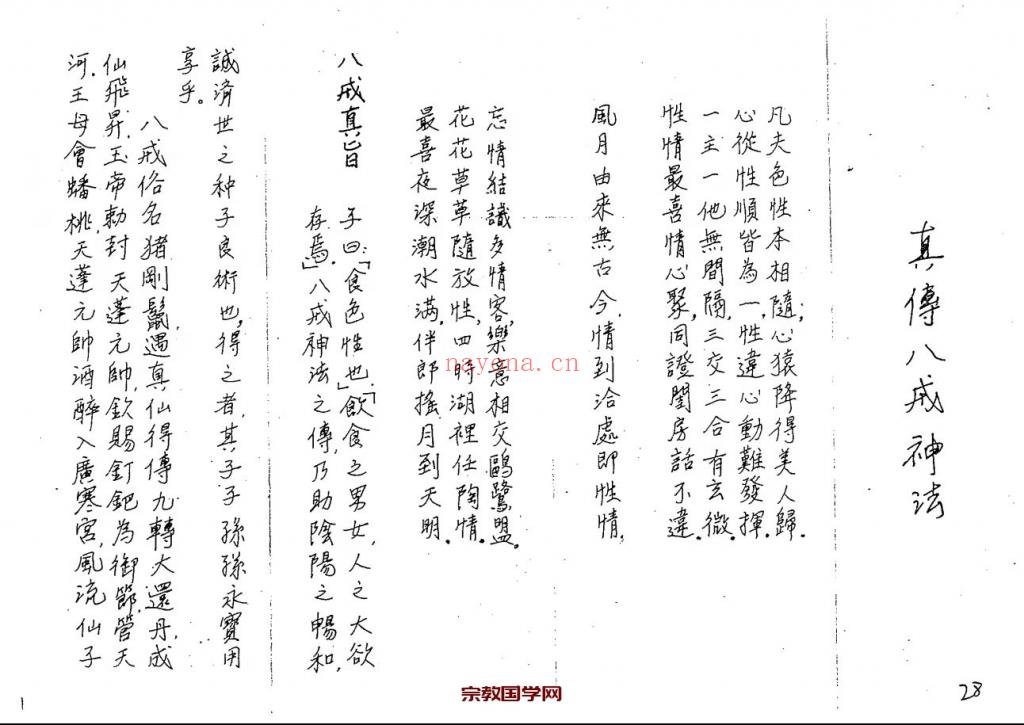 真傳八戒神法
凡夫色性本相隨；心猿降得美人歸．
心從性順皆為一，性違心動難發揮．
一主一他無間隔，三交三合有玄微．
性情最喜情心聚，同證閨房話不違．
風月由來無古今，情到洽處即性情，
忘情結識多情客，樂意相交鷗鷺盟．
花花草草隨放性，四時湖裡任陶情．
最喜夜深潮水满，伴郎搖月到天明．
八戒真旨
子曰：「食色性也」「飲食之男女，人之大欲
存焉．」八戒神法之傳，乃助陰陽之暢和，
誠濟世之种子良術也，得之者，其子子孫孫永寶用
享乎。
八戒俗名猪剛鬣，遇真仙得傳九轉大還丹，成
仙飛昇，玉帝勅封天蓬元帥，欽賜釘鈀為御節，管天
河．王母會蟠桃，天蓬元帥酒醉入廣寒宮，風流仙子
nayona.cn
宗教国学网
28
1